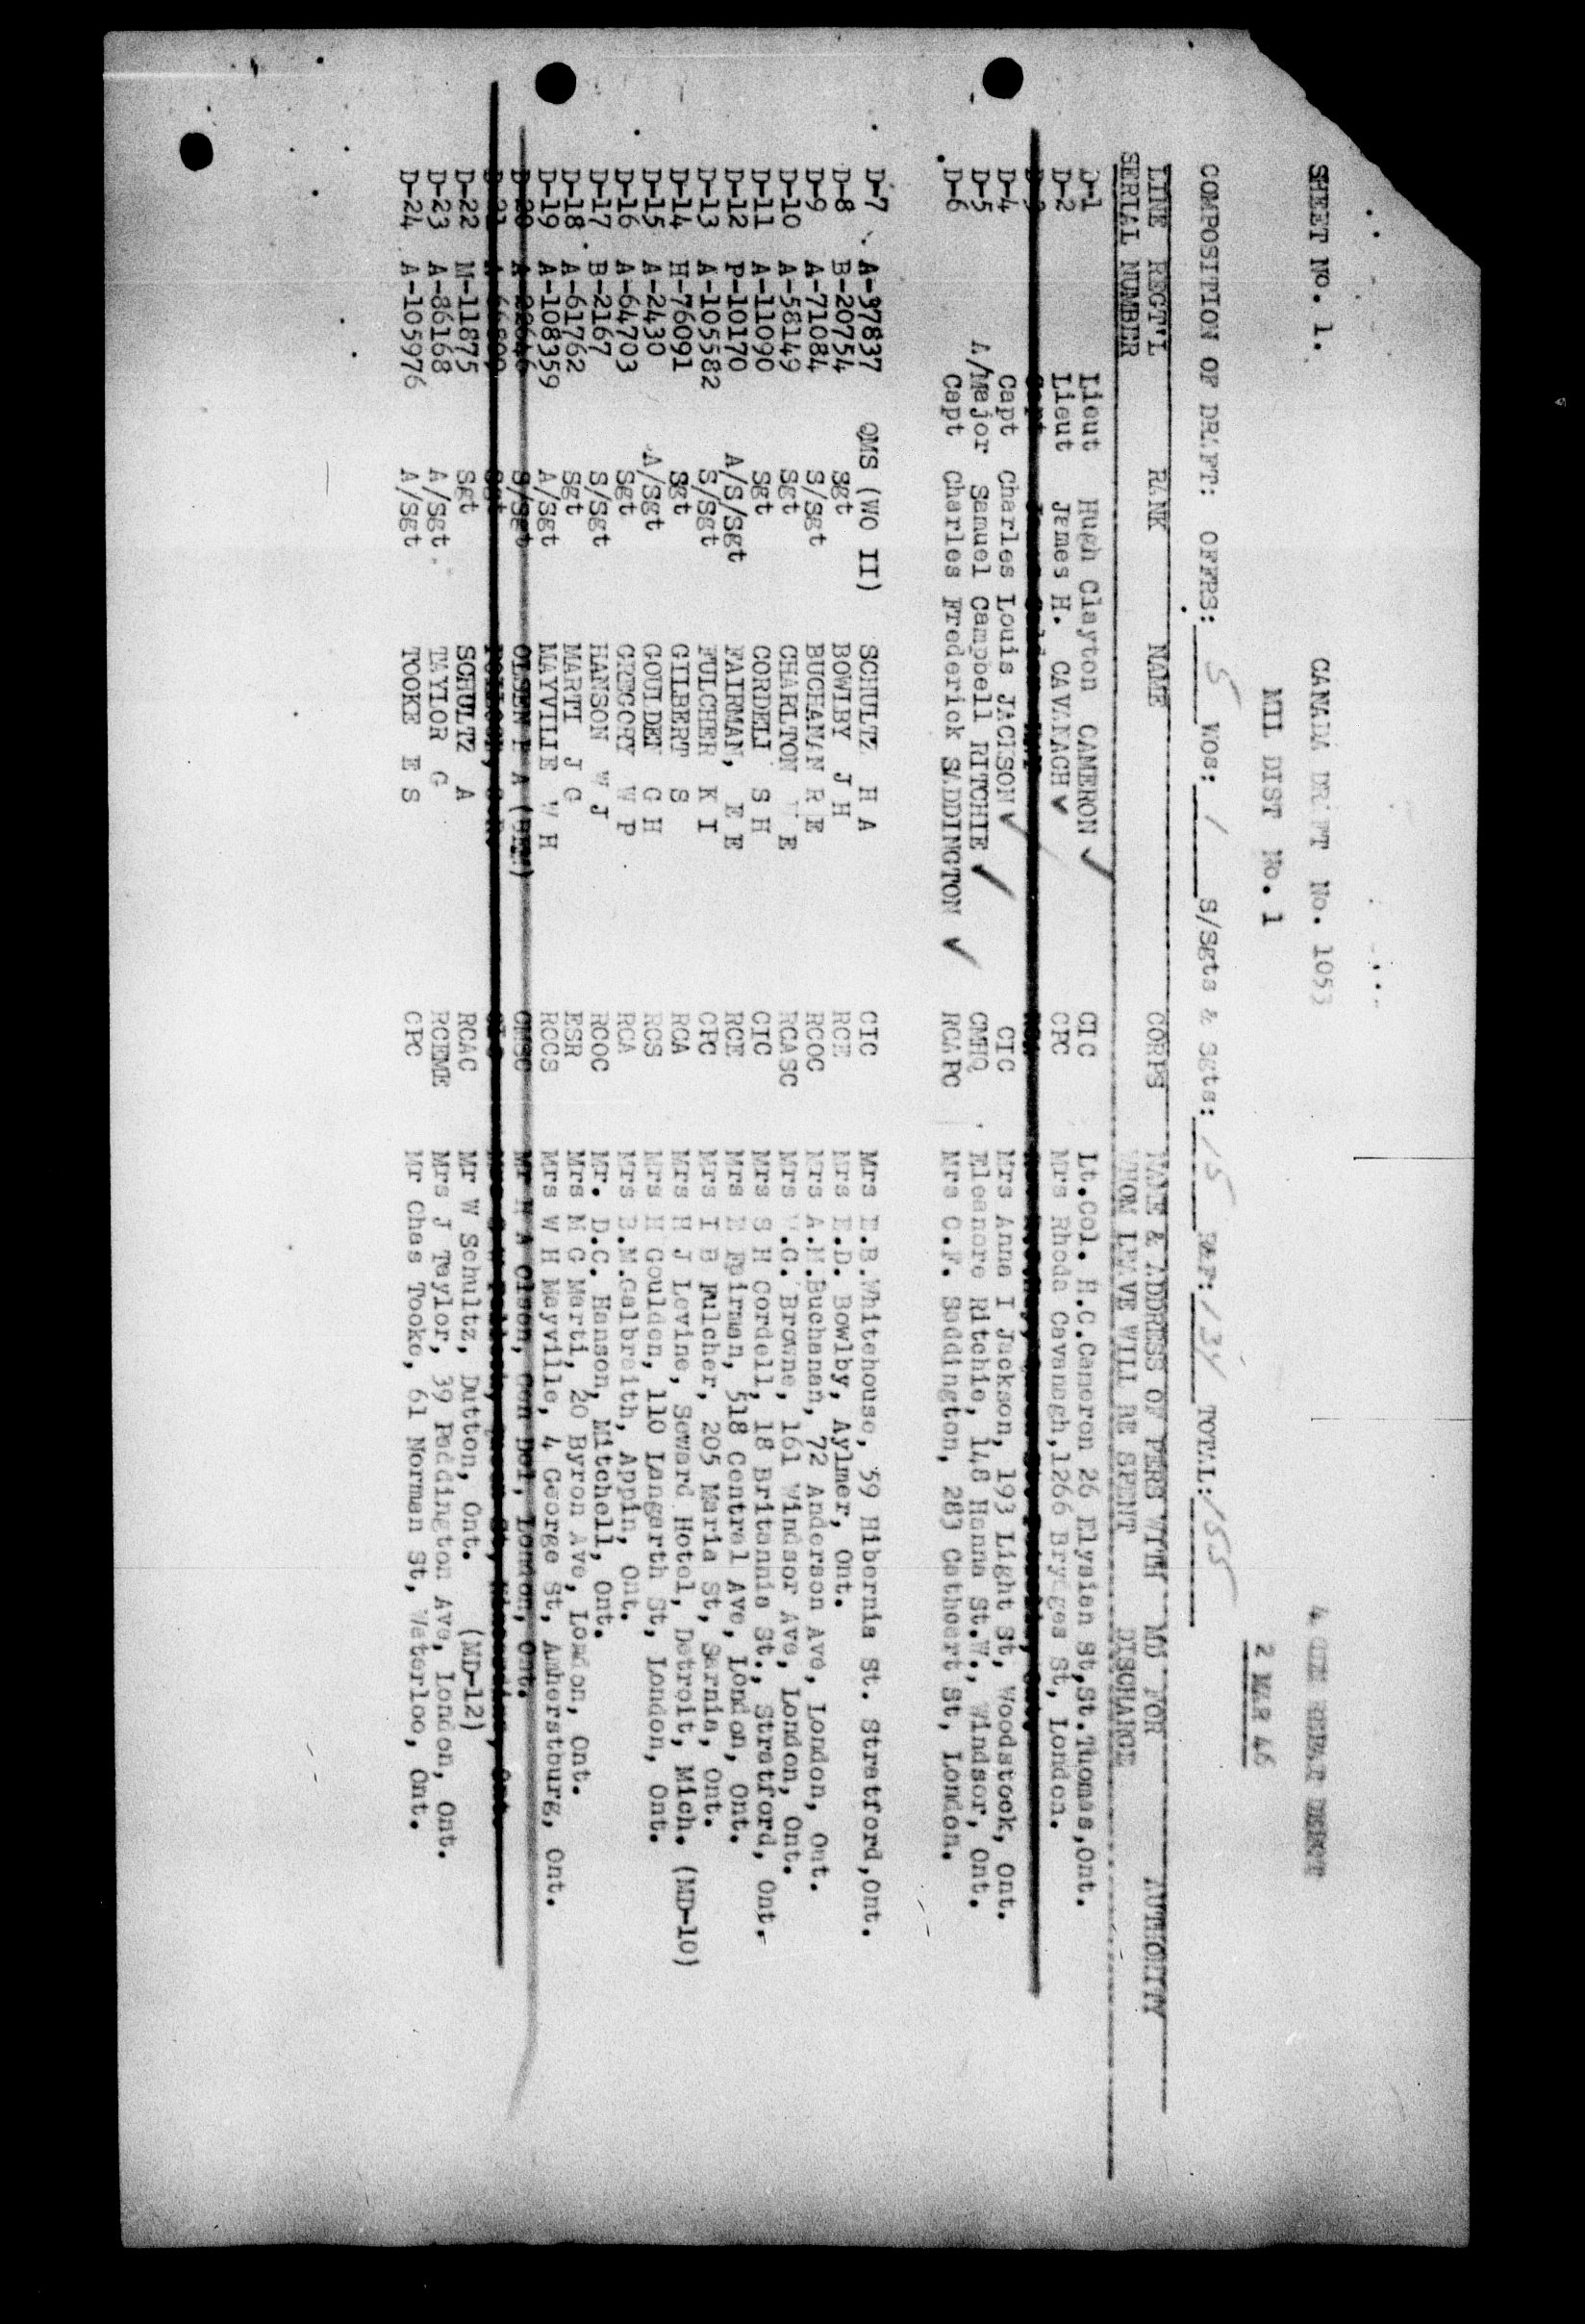 SHEET No. 1. CANADA DRAFT No. 1053
MIL DIST No. 1 2 MAR 46
COMPOSITION OF DRAFT: OFFRS: 5 WOs: 1 S/Sgts & Sgts: 15 R&F: 134 TOTAL: 155
LINE REGT'L RANK NAME CORPS NAME & ADDRESS OF PERS WITH MD FOR AUTHORITY
SERIAL NUMBER WHOM LEAVE WILL BE SPENT DISCHARGE
D-1 Lieut Hugh Clayton CAMERON ✓ CIC Lt.Col. H.C.Cameron 26 Elysian St,St.Thomas,Ont.
D-2 Lieut James H. CAVANAGH ✓ CPC Mrs Rhoda Cavanagh,1266 Brydges St, London.
D-3 Capt
D-4 Capt Charles Louis JACKSON ✓ CIC Mrs Anna I Jackson, 193 Light St, Woodstock, Ont.
D-5 A/Major Samuel Campbell RITCHIE ✓ CMHQ Eleanore Ritchie, 148 Hanna St.W., Windsor, Ont.
D-6 Capt Charles Frederick SADDINGTON ✓ RCAPC Mrs C.F. Saddington, 283 Cathcart St, London.
D-7 A-37837 QMS (WO II) SCHULTZ H A CIC Mrs E.B.Whitehouse, 59 Hibernia St. Stratford,Ont.
D-8 B-20754 Sgt BOWLBY J H RCE Mrs E.D. Bowlby, Aylmer, Ont.
D-9 A-71084 S/Sgt BUCHANAN R E RCOC Mrs A.M.Buchanan, 72 Anderson Ave, London, Ont.
D-10 A-58149 Sgt CHARLTON E RCASC Mrs .G. Browne, 161 Windsor Ave, London, Ont.
D-11 A-11090 Sgt CORDELL S H CIC Mrs S H Cordell, 18 Britannia St., Stratford, Ont.
D-12 P-10170 A/S/Sgt FAIRMAN, E E RCE Mrs E Fairman, 518 Central Ave, London, Ont.
D-13 A-105582 S/Sgt FULCHER K I CPC Mrs I B Fulcher, 205 Maria St, Sarnia, Ont.
D-14 H-76091 Sgt GILBERT S RCA Mrs H J Levine, Seward Hotel, Detroit, Mich. (MD-10)
D-15 A-2430 A/Sgt GOULDEN G H RCS Mrs H Goulden, 110 Langarth St, London, Ont.
D-16 A-64703 Sgt GREGORY W P RCA Mrs B.M.Galbraith, Appin, Ont.
D-17 B-2167 S/Sgt HANSON W J RCOC Mr. D.C. Hanson, Mitchell, Ont.
D-18 A-61762 Sgt MARTI J G ESR Mrs M G Marti, 20 Byron Ave, London, Ont.
D-19 A-108359 A/Sgt MAYVILLE W H RCCS Mrs W H Mayville, 4 George St, Amherstburg, Ont.
D-20 S/Sgt OLSEN Olson, London, Ont.
D-21 Sgt
D-22 M-11875 Sgt SCHULTZ A RCAC Mr W Schultz, Dutton, Ont. (MD-12)
D-23 A-86168 A/Sgt TAYLOR G RCEME Mrs J Taylor, 39 Paddington Ave, London, Ont.
D-24 A-105976 A/Sgt TOOKE E S CPC Mr Chas Tooke, 61 Norman St, Waterloo, Ont.